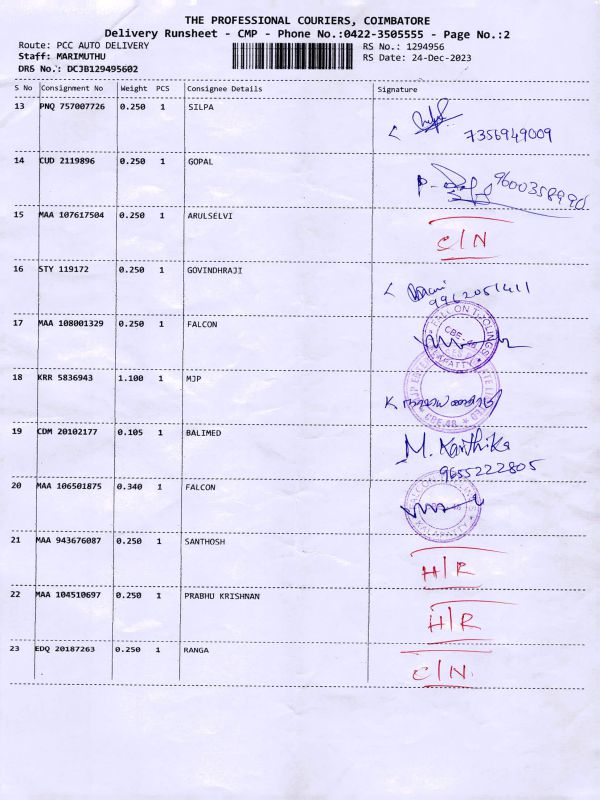 THE PROFESSIONAL COURIERS, COIMBATORE
Delivery Runsheet - CMP - Phone No.:0422-3505555 - Page No.:2
Route: PCC AUTO DELIVERY
RS No.: 1294956
Staff: MARIMUTHU
RS Date: 24-Dec-2023
DRS No.: DCJB129495602
S No Consignment No Weight PCS Consignee Details Signature
13 PNQ 757007726 0.250 1 SILPA
7356949009
14 CUD 2119896 0.250 1 GOPAL
9600358990
15 MAA 107617504 0.250 1 ARULSELVI
C/N
16 STY 119172 0.250 1 GOVINDHRAJI
9962051411
17 MAA 108001329 0.250 1 FALCON
FALCON TOOLINGS
CBE-48
KALAPATTY
18 KRR 5836943 1.100 1 MJP
CBE-48
19 CDM 20102177 0.105 1 BALIMED
M. Karthika
9655222805
20 MAA 106501875 0.340 1 FALCON
FALCON TOOLINGS
KALAPATTY
21 MAA 943676087 0.250 1 SANTHOSH
H/R
22 MAA 104510697 0.250 1 PRABHU KRISHNAN
H/R
23 EDQ 20187263 0.250 1 RANGA
C/N